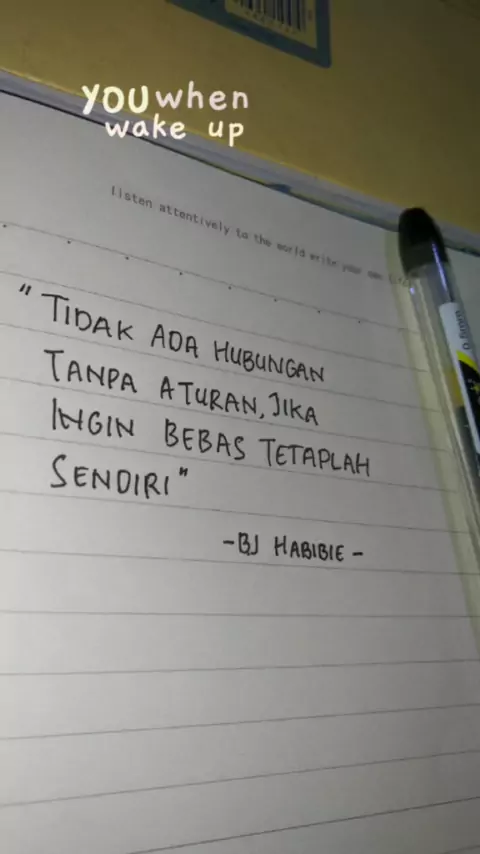 YOU when
wake up
listen attentively to the world write your own
"TIDAK ADA HUBUNGAN
TANPA ATURAN, JIKA
INGIN BEBAS TETAPLAH
SENDIRI"
-BJ HABIBIE-